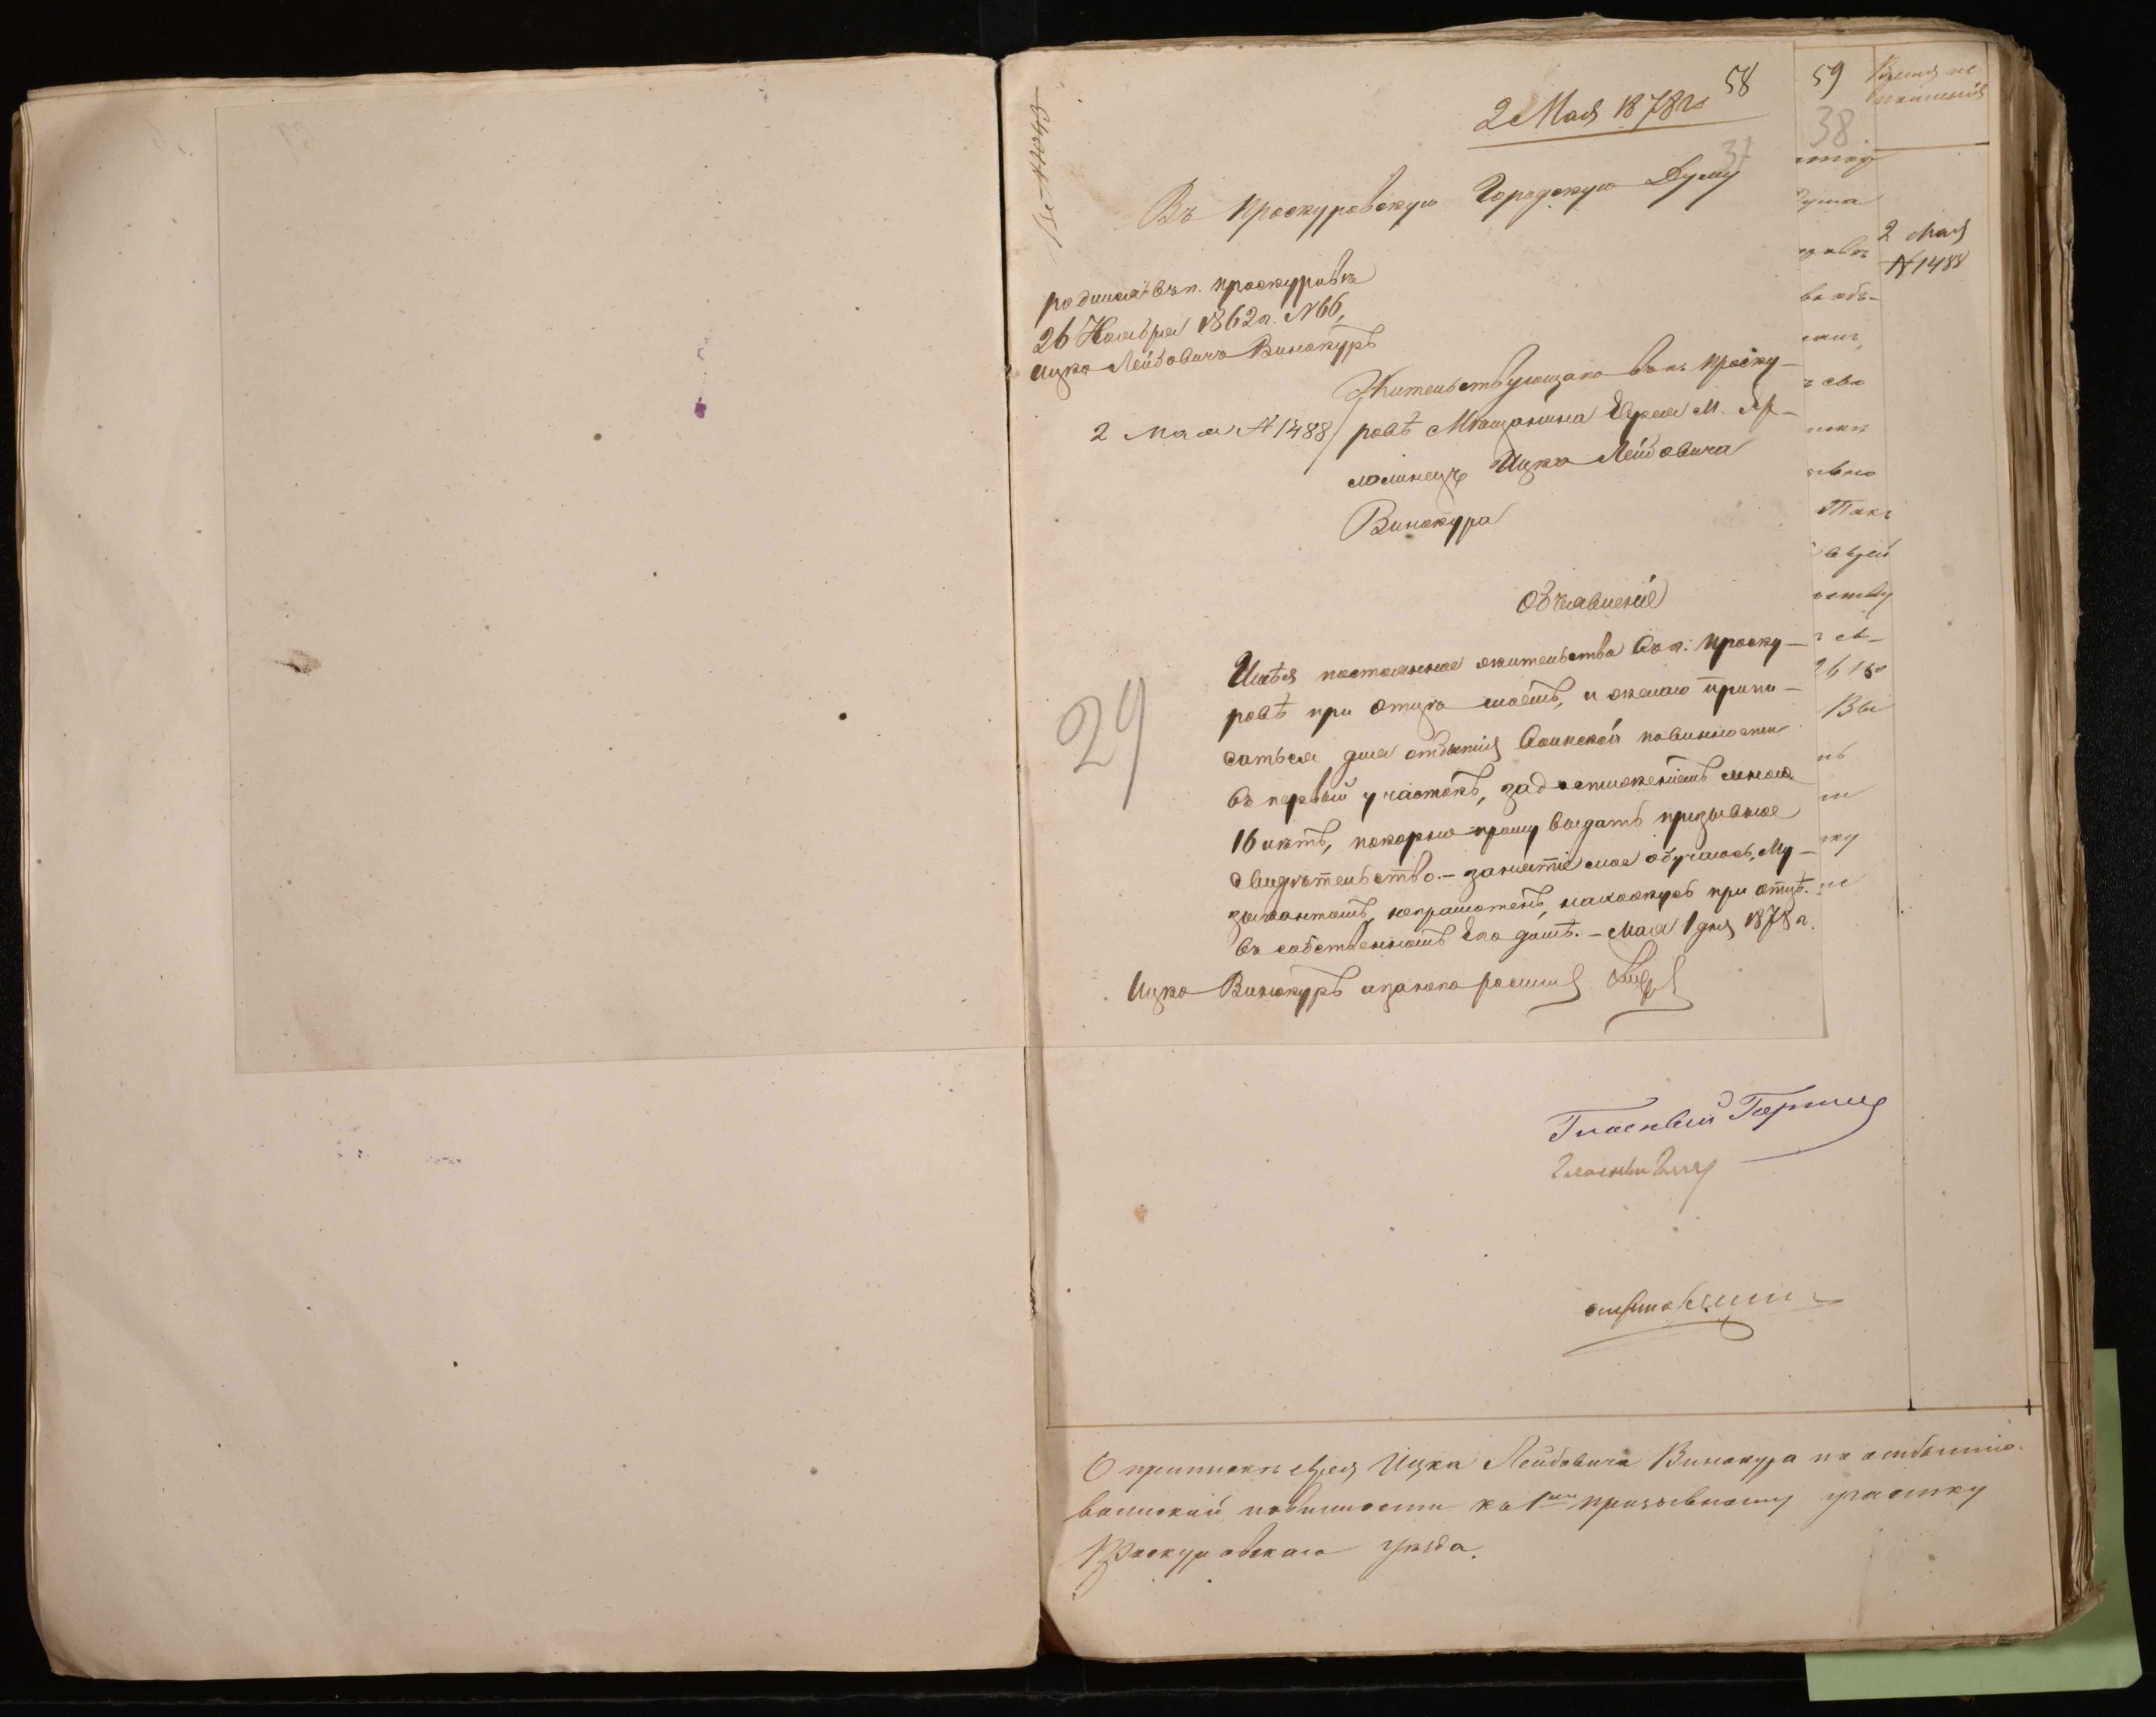 2 Мая 1878 г.
58
37
Въ Проскуровскую Городскую Думу
родился въ г. Проскуровѣ
26 Ноября 1862 г. №66,
Ицко Лейбовичъ Винокуръ
2 мая №1488
Жительствующаго въ г. Проску-
ровѣ Мѣщанина Еврея М. Яр-
молинецъ Ицка Лейбовича
Винокура
Объявленіе
Имѣя постоянное жительство въ г. Проску-
ровѣ при отцѣ моемъ, и желаю припи-
саться для отбытія Воинской повинности
въ первый участокъ, за достиженіемъ мною
16 лѣтъ, покорно прошу выдать призывное
свидѣтельство. – занятіе мое обучаюсь Му-
зыкантомъ, неграмотенъ, нахожусь при отцѣ.
въ собственномъ его домѣ. – Мая 1 дня 1878 г.
Ицко Винокуръ
29
59
38
Время
2 Мая
№1488
Такъ
Гласный
Гласный
О припискѣ еврея Ицка Лейбовича Винокура по отбытію
воинской повинности къ 1му призывному участку
Проскуровскаго уѣзда.